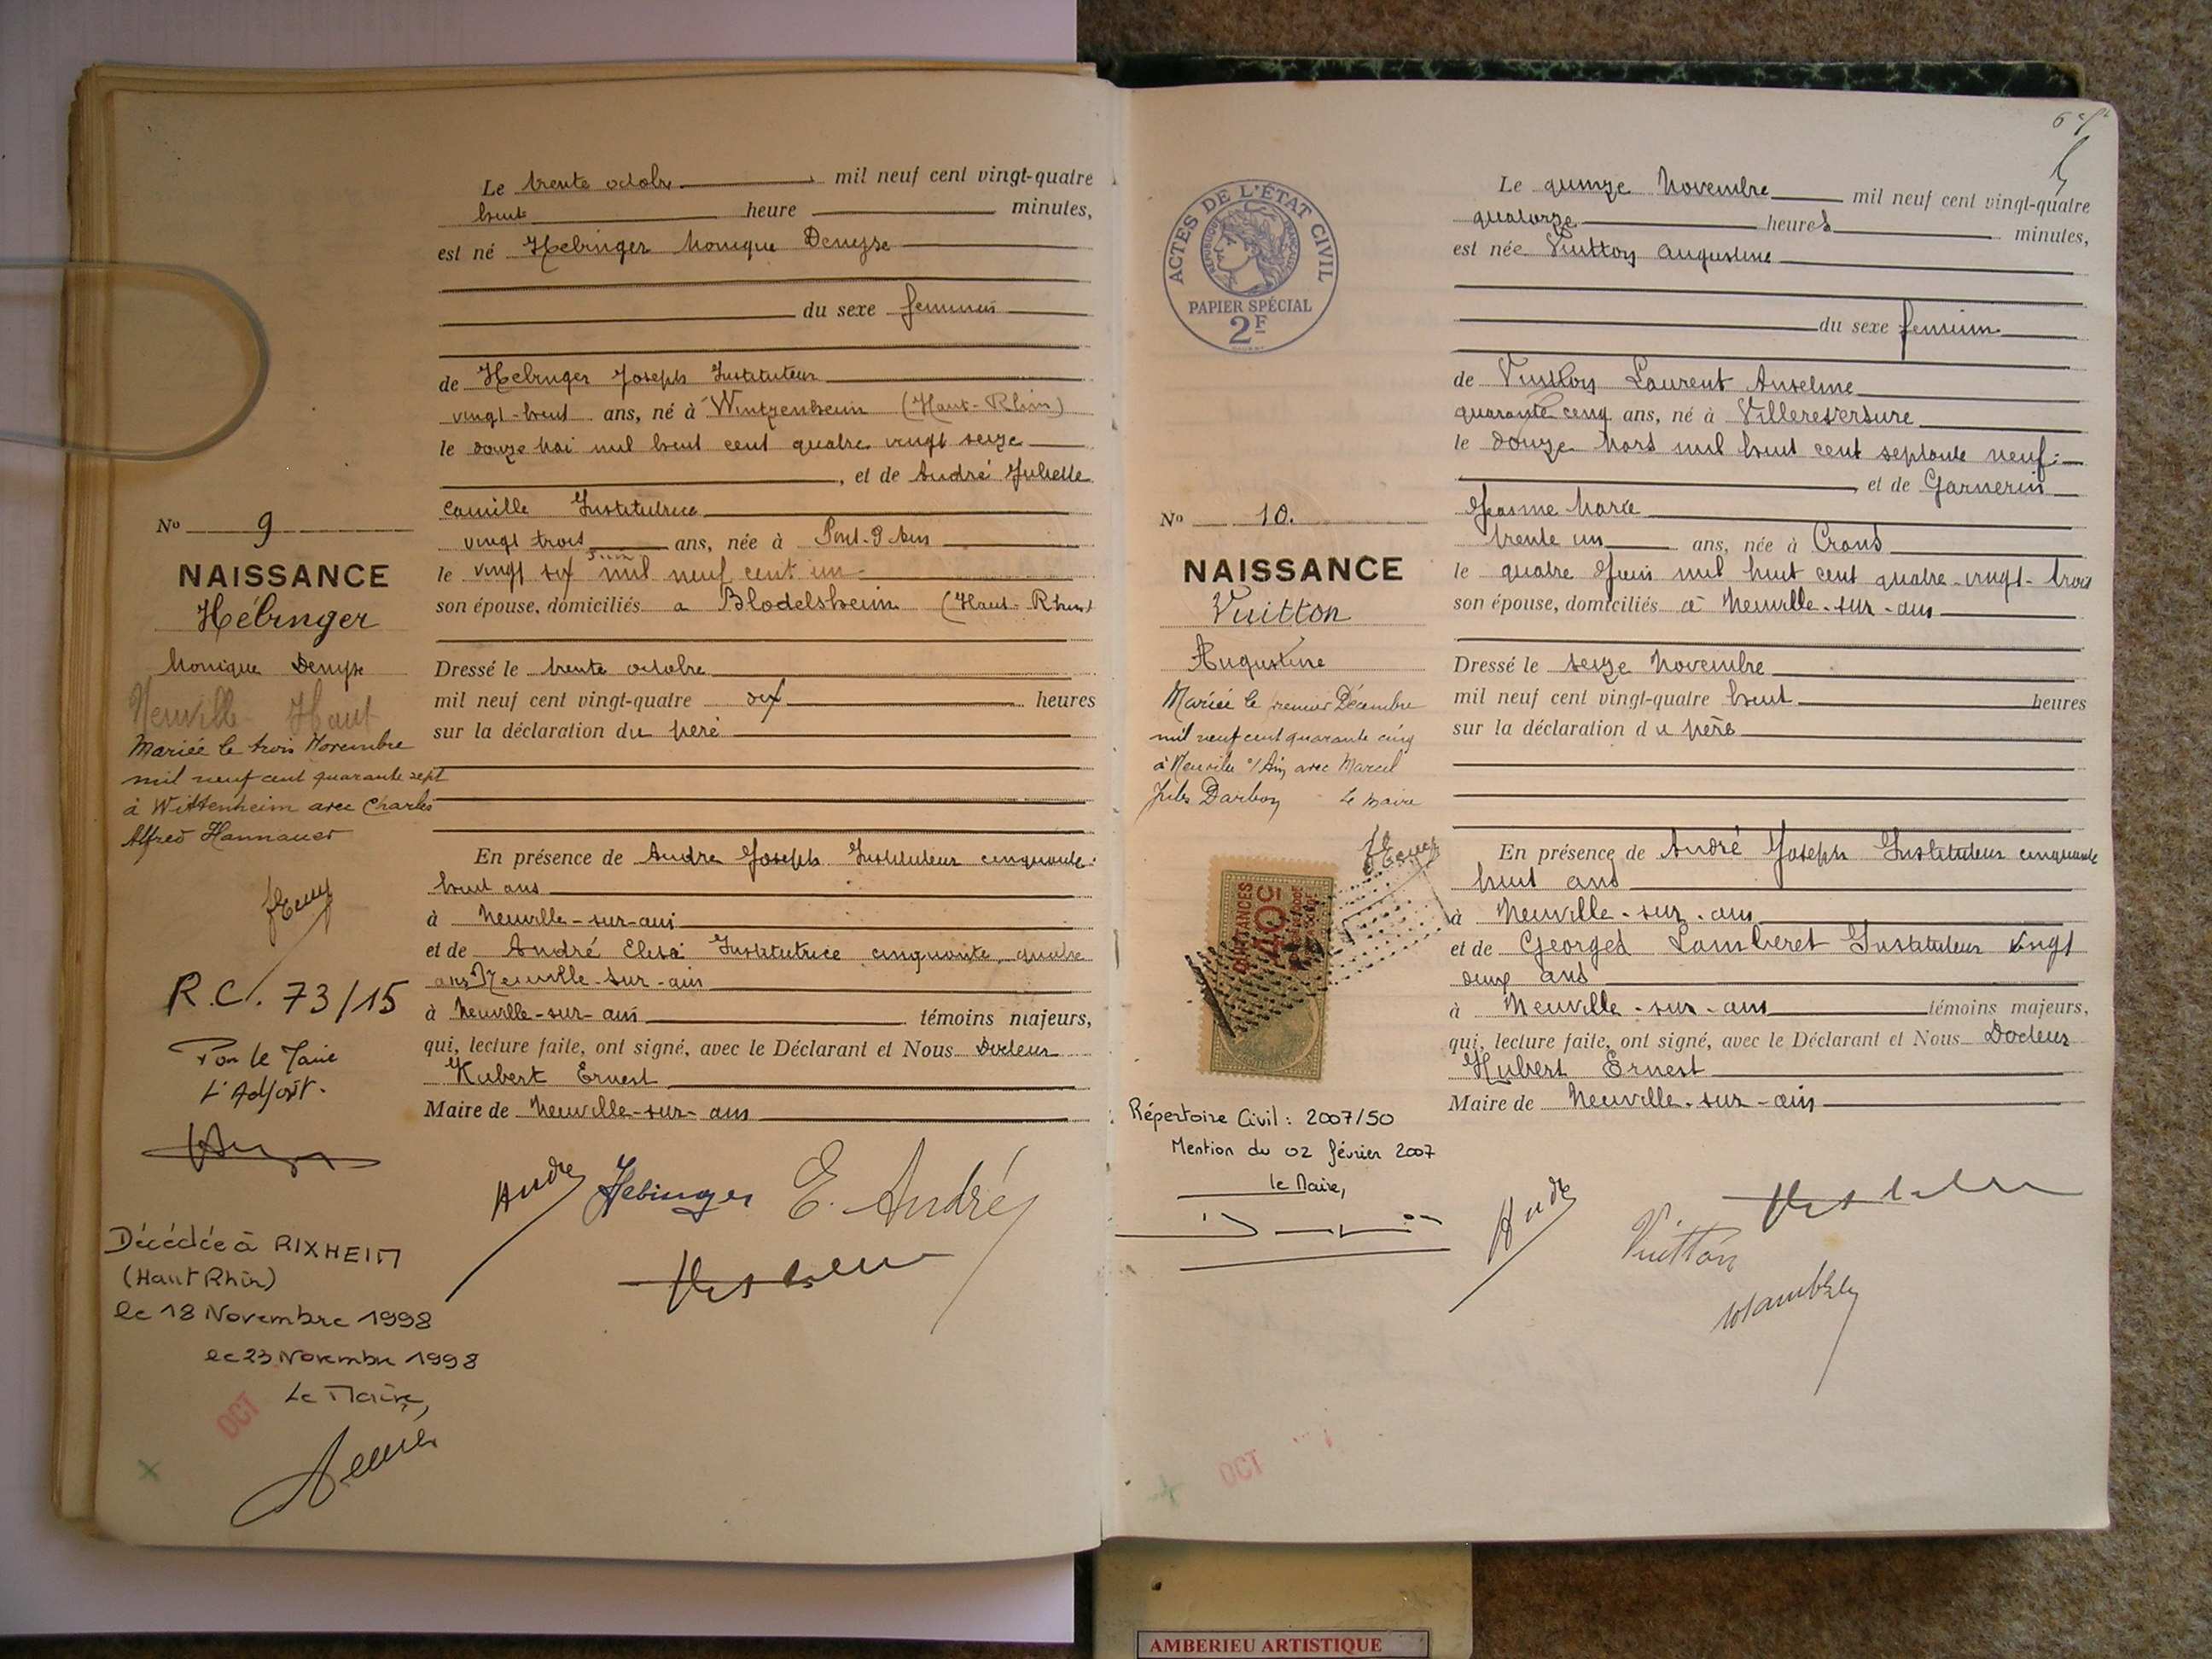 Le trente octobre mil neuf cent vingt-quatre
huit heure minutes,
est né Hebinger Monique Denyse
du sexe féminin
de Hebinger Joseph Instituteur
vingt-huit ans, né à Wintzenheim (Haut-Rhin)
le douze Mai mil huit cent quatre vingt seize
, et de André Juliette
Camille Institutrice
vingt trois ans, née à Pont-d'Ain
juin
le vingt six mil neuf cent un
son épouse, domiciliés à Blodelsheim (Haut-Rhin)
Dressé le trente octobre
mil neuf cent vingt-quatre dix heures
sur la déclaration du père
En présence de André Joseph Instituteur cinquante
huit ans
à Neuville-sur-ain
et de André Elisa Institutrice cinquante quatre
ans Neuville-sur-ain
à Neuville-sur-ain témoins majeurs,
qui, lecture faite, ont signé, avec le Déclarant et Nous Docteur
Hubert Ernest
Maire de Neuville-sur-ain
André Hebinger E. André
No 9
NAISSANCE
Hébinger
Monique Denyse
Neuville Haut
Mariée le trois Novembre
mil neuf cent quarante sept
à Wittenheim avec Charles
Alfred Hannauer
R.C. 73/15
Pour le Maire
L'Adjoint.
Décédée à RIXHEIM
(Haut Rhin)
le 18 Novembre 1998
le 23 Novembre 1998
Le Maire,
OCT
ACTES DE L'ÉTAT CIVIL
RÉPUBLIQUE FRANÇAISE
PAPIER SPÉCIAL
2F
No 10.
NAISSANCE
Vuitton
Augustine
Mariée le premier Décembre
mil neuf cent quarante cinq
à Neuville s/Ain avec Marcel
Jules Darbon Le Maire
QUITTANCES
40c
Répertoire Civil : 2007/50
Mention du 02 février 2007
le Maire,
OCT
Le quinze Novembre mil neuf cent vingt-quatre
quatorze heures minutes,
est née Vuitton Augustine
du sexe féminin
de Vuitton Laurent Anselme
quarante cinq ans, né à Villereversure
le douze Mars mil huit cent septante neuf
et de Garnerin
Jeanne Marie
trente un ans, née à Crans
le quatre Juin mil huit cent quatre-vingt-trois
son épouse, domiciliés à Neuville-sur-ain
Dressé le seize Novembre
mil neuf cent vingt-quatre huit heures
sur la déclaration du père
En présence de André Joseph Instituteur cinquante
huit ans
à Neuville-sur-ain
et de Georges Lamberet Instituteur vingt
deux ans
à Neuville-sur-ain témoins majeurs,
qui, lecture faite, ont signé, avec le Déclarant et Nous Docteur
Hubert Ernest
Maire de Neuville-sur-ain
André Vuitton
AMBERIEU ARTISTIQUE